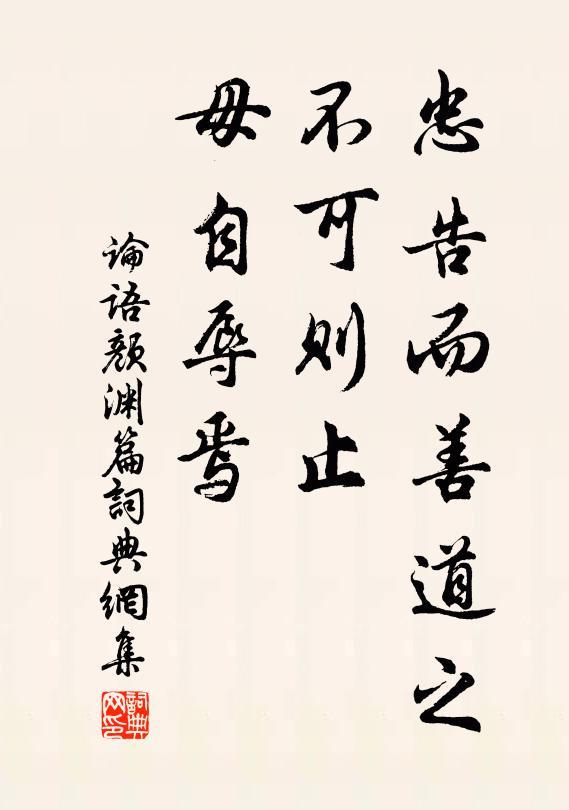 忠告而善道之
不可则止
毋自辱焉
论语颜渊篇詞典網集
詞典网印